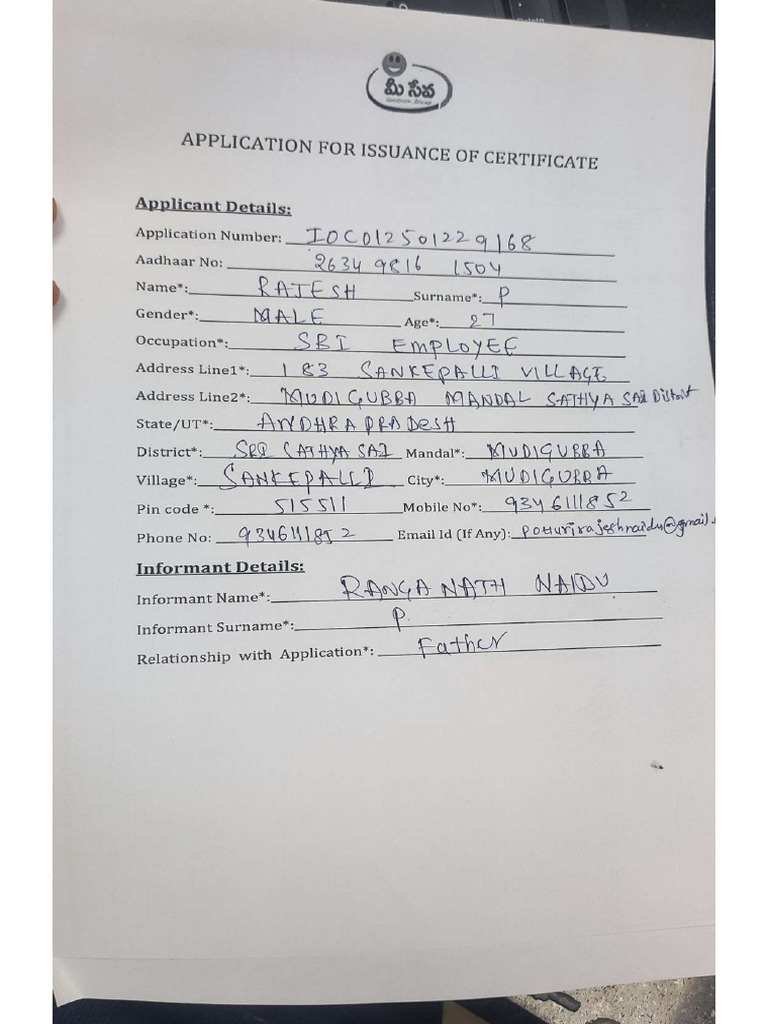 మీ సేవ
APPLICATION FOR ISSUANCE OF CERTIFICATE
Applicant Details:
Application Number: IOC012501229168
Aadhaar No: 2634 9816 1504
Name*: RAJESH Surname*: P
Gender*: MALE Age*: 27
Occupation*: SBI EMPLOYEE
Address Line1*: 183 SANKEPALLI VILLAGE
Address Line2*: MUDIGUBBA MANDAL SATHYA SAI District
State/UT*: ANDHRA PRADESH
District*: SRI SATHYA SAI Mandal*: MUDIGUBBA
Village*: SANKEPALLI City*: MUDIGUBBA
Pin code *: 515511 Mobile No*: 9346111852
Phone No: 9346111852 Email Id (If Any): potturirajeshnaidu@gmail.
Informant Details:
Informant Name*: RANGANATH NAIDU
Informant Surname*: P.
Relationship with Application*: Father